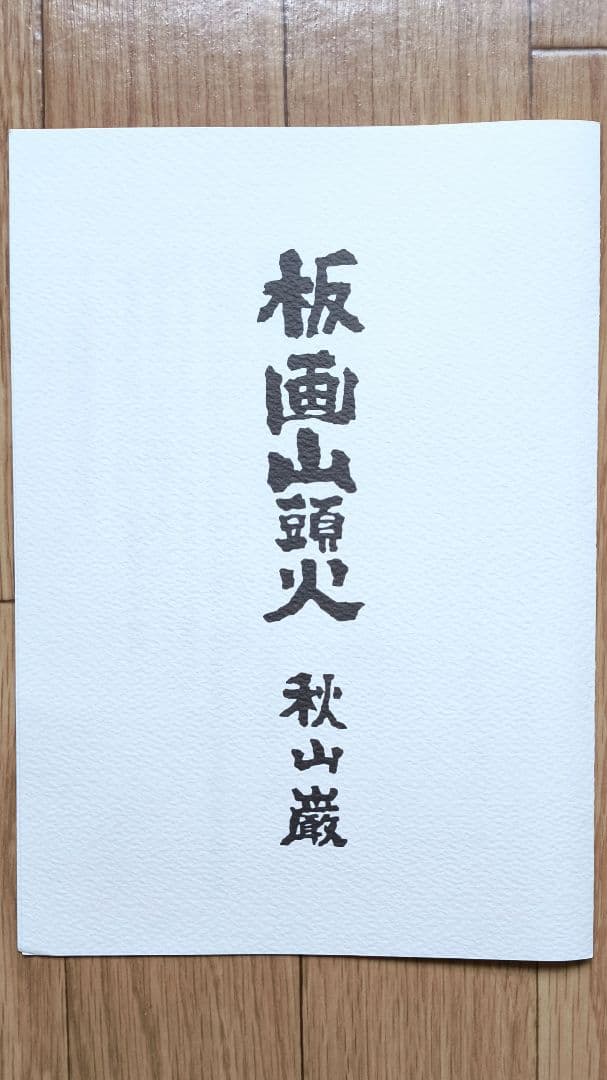 板画山頭火
秋山巌